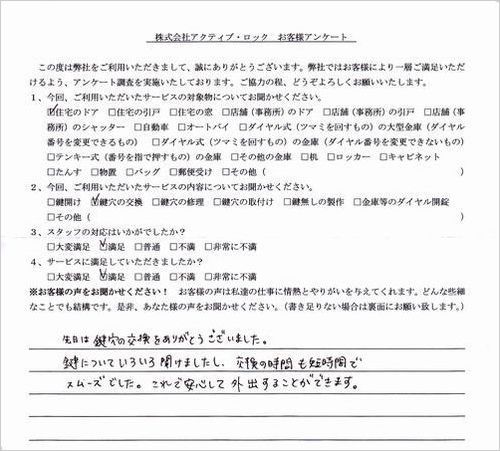 株式会社アクティブ・ロック　お客様アンケート
この度は弊社をご利用いただきまして、誠にありがとうございます。弊社ではお客様により一層ご満足いただ
けるよう、アンケート調査を実施いたしております。ご協力の程、どうぞよろしくお願いいたします。
1、今回、ご利用いただいたサービスの対象物についてお聞かせください。
☑住宅のドア　□住宅の引戸　□住宅の窓　□店舗（事務所）のドア　□店舗（事務所）の引戸　□店舗（事
務所）のシャッター　□自動車　□オートバイ　□ダイヤル式（ツマミを回すもの）の大型金庫（ダイヤル
番号を変更できるもの）　□ダイヤル式（ツマミを回すもの）の金庫（ダイヤル番号を変更できないもの）
□テンキー式（番号を指で押すもの）の金庫　□その他の金庫　□机　□ロッカー　□キャビネット
□たんす　□物置　□バッグ　□郵便受け　□その他（　）
2、今回、ご利用いただいたサービスの内容についてお聞かせください。
□鍵開け　☑鍵穴の交換　□鍵穴の修理　□鍵穴の取付け　□鍵無しの製作　□金庫等のダイヤル開錠
□その他（　）
3、スタッフの対応はいかがでしたか？
□大変満足　☑満足　□普通　□不満　□非常に不満
4、サービスに満足していただきましたか？
□大変満足　☑満足　□普通　□不満　□非常に不満
※お客様の声をお聞かせください！　お客様の声は私達の仕事に情熱とやりがいを与えてくれます。どんな些細
なことでも結構です。是非、あなた様の声をお聞かせください。（書き足りない場合は裏面にお願い致します。）
先日は鍵穴の交換をありがとうございました。
鍵についていろいろ聞けましたし、交換の時間も短時間で
スムーズでした。これで安心して外出することができます。